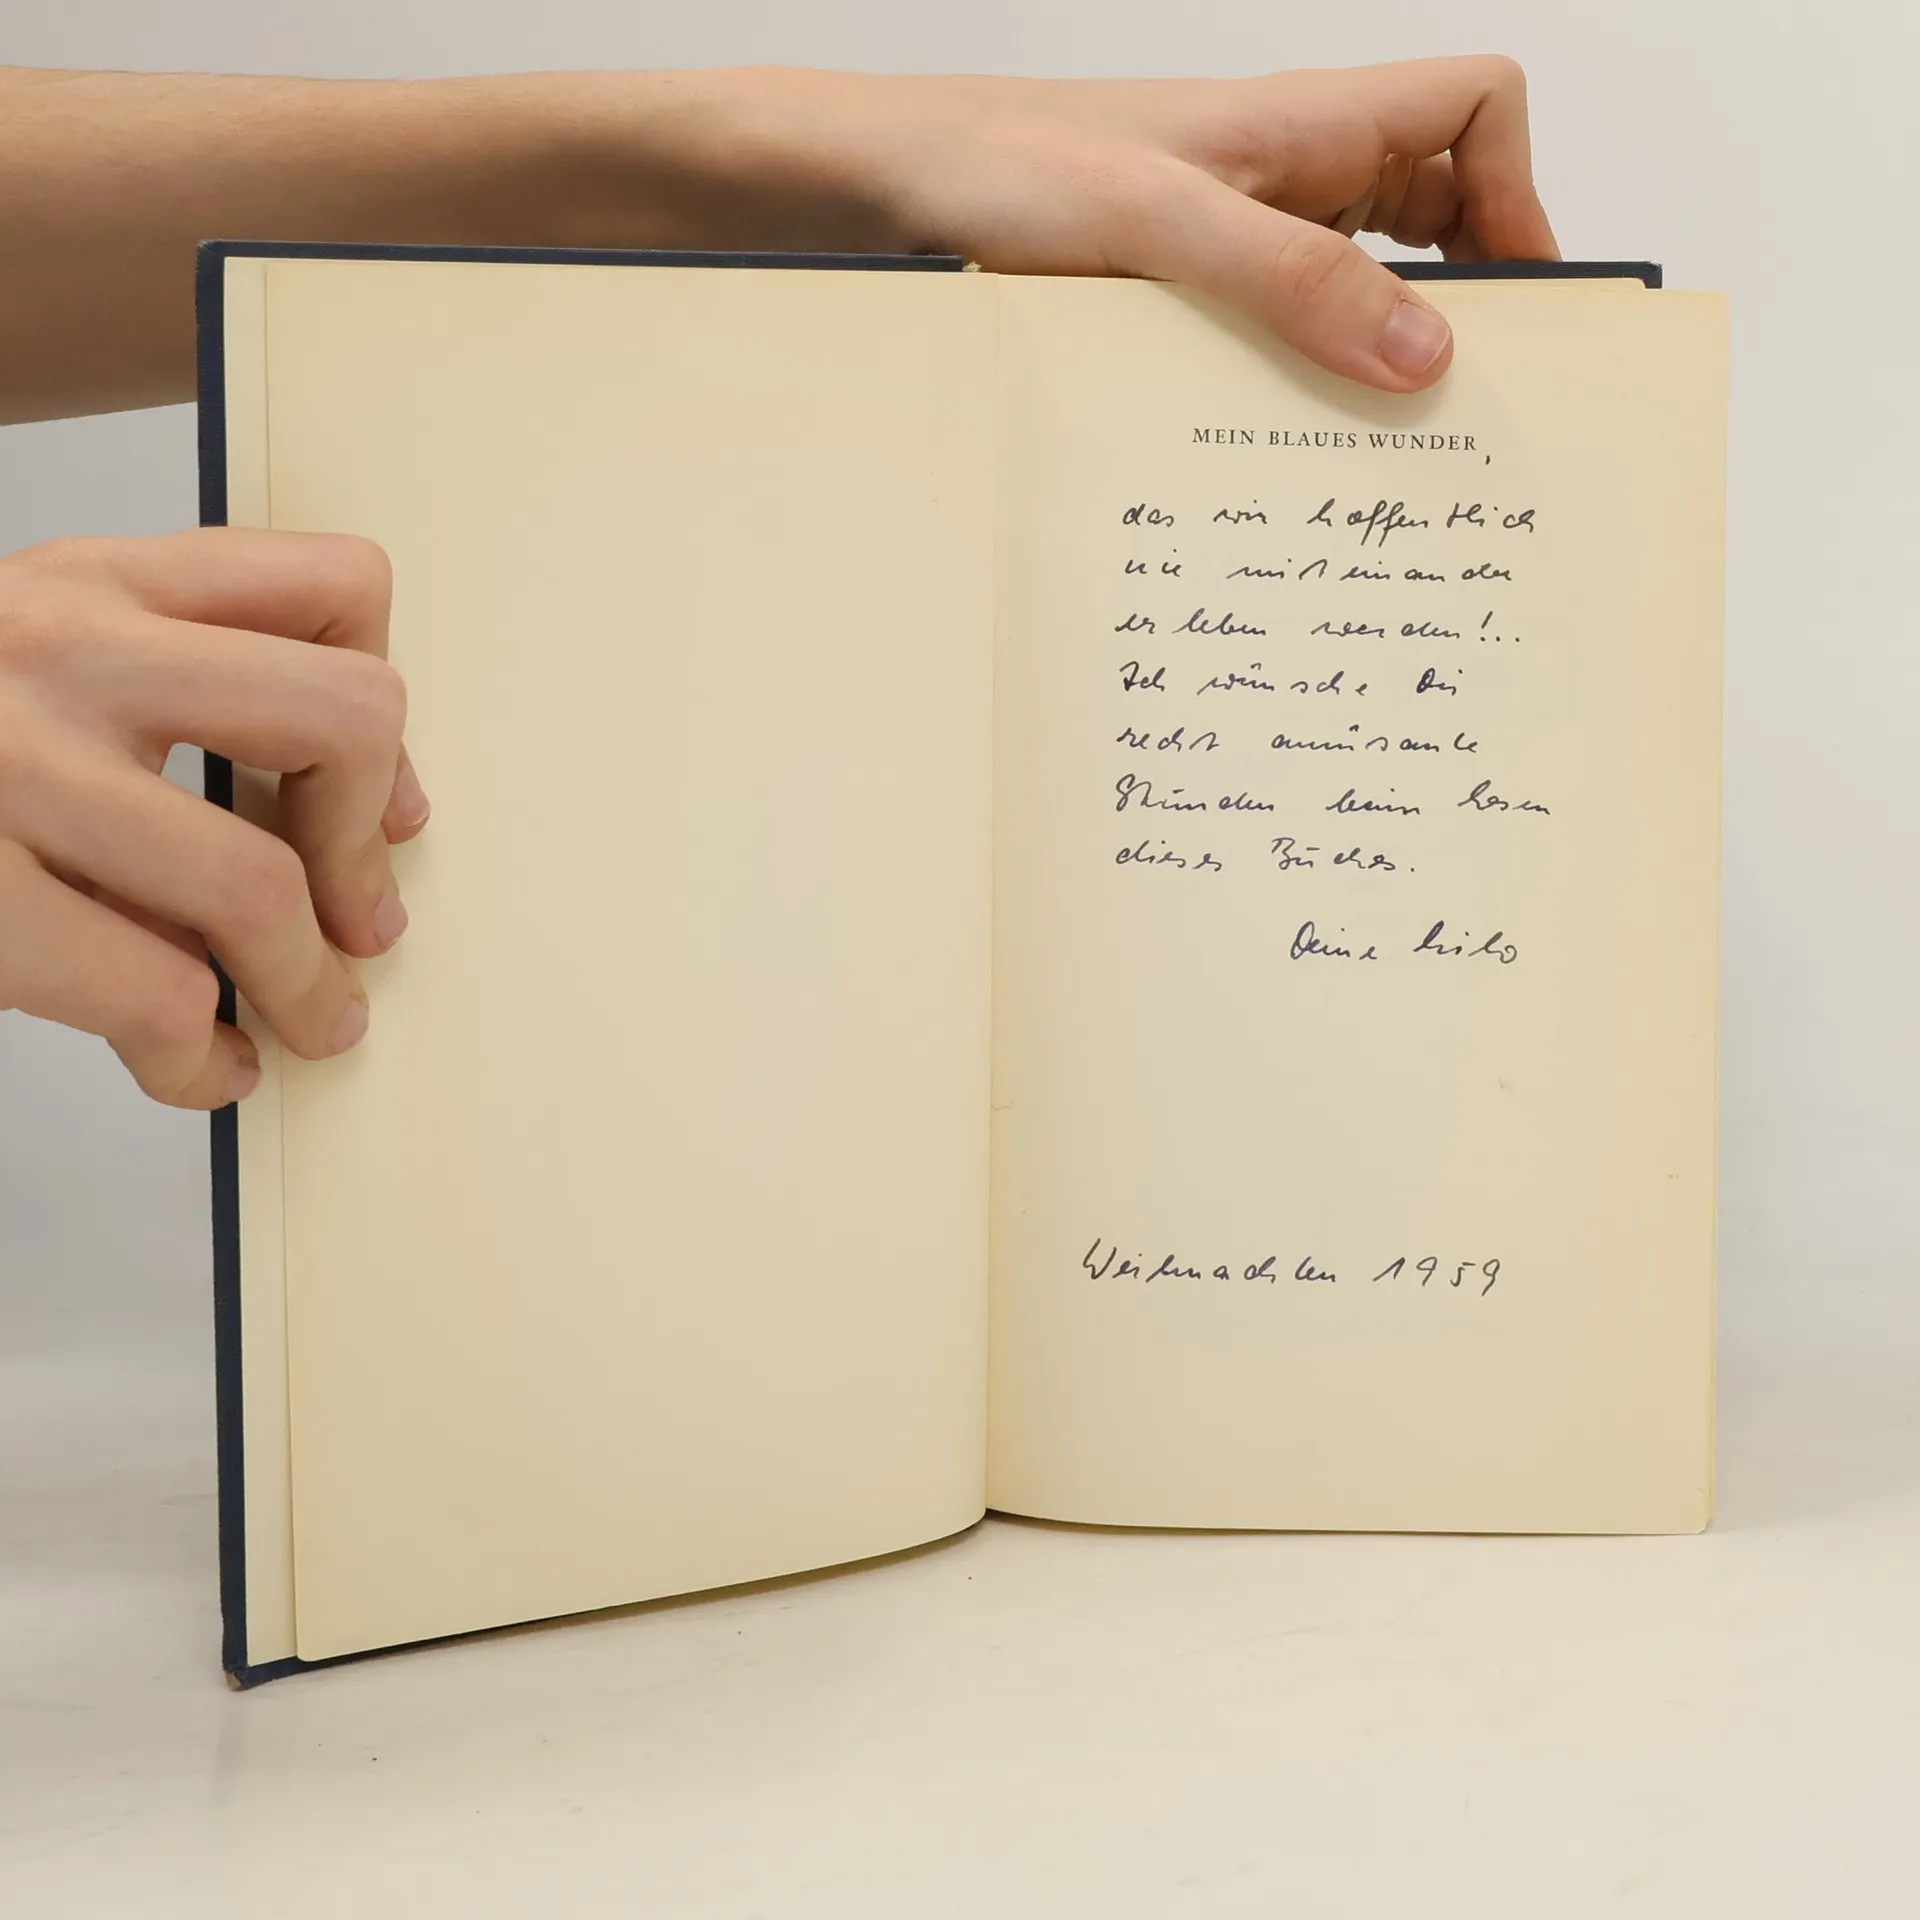 MEIN BLAUES WUNDER,
das wir hoffentlich
nie miteinander
erleben werden!..
Ich wünsche Dir
recht amüsante
Stunden beim Lesen
dieses Buches.
Deine
Weihnachten 1959